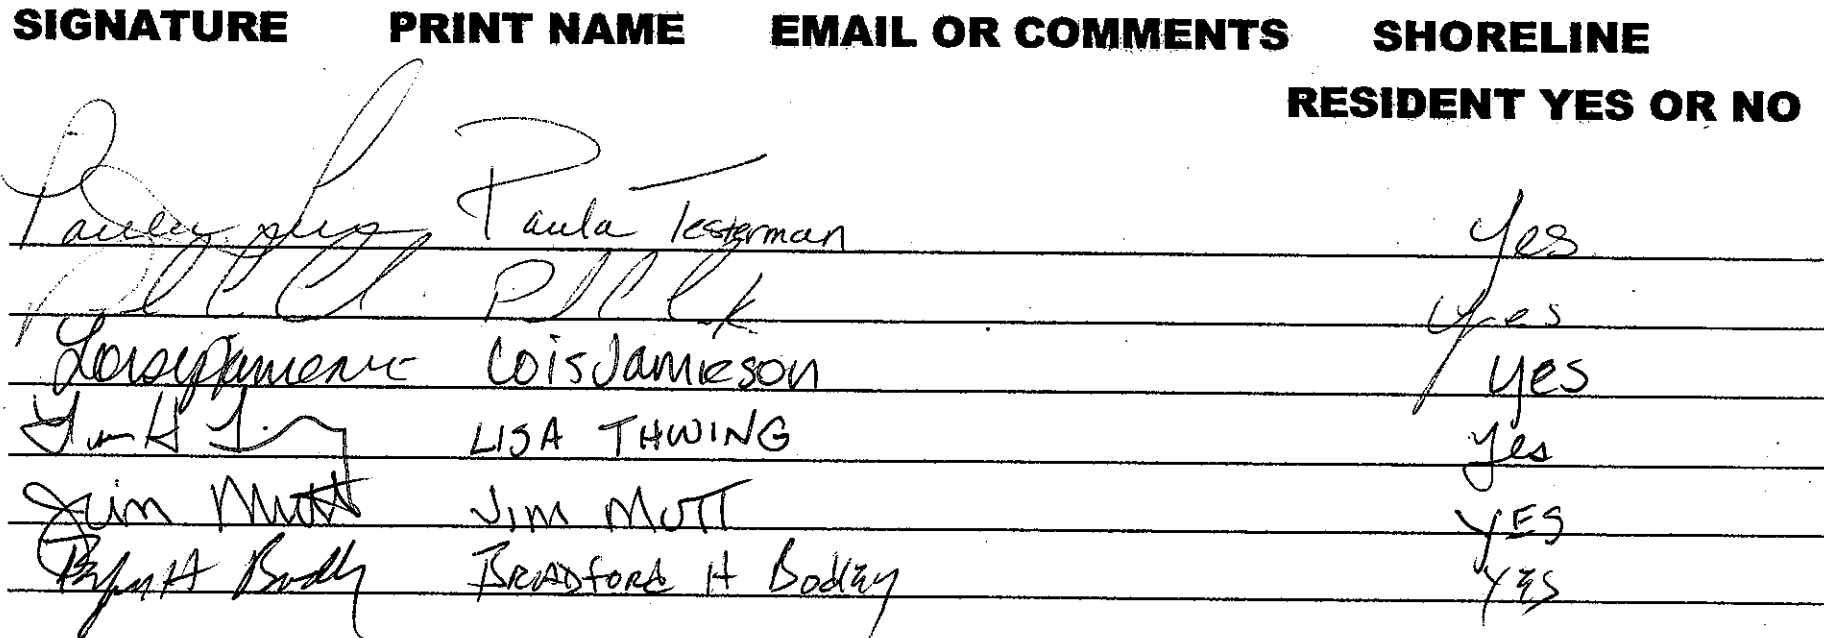 SIGNATURE PRINT NAME EMAIL OR COMMENTS SHORELINE
RESIDENT YES OR NO
Paula Testerman Yes
Yes
Lois Jamieson Lois Jamieson Yes
LISA THWING Yes
Jim Mutt JIM MUTT YES
H Bodley BRADFORD H Bodley YES